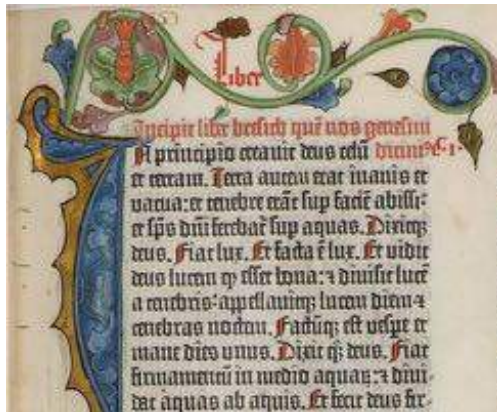 Liber
Incipit liber bresich quē nos genesim
In principio creavit deus celū dicimꝰ C·1·
et terram. Terra autem erat inanis et
vacua: et tenebre erāt sup faciē abissi:
et sp̄s dn̄i ferebat᷑ sup aquas. Dixitqꝫ
deus. Fiat lux. Et facta ē lux. Et vidit
deus lucem ꝙ esset bona: ⁊ divisit lucē
a tenebris· appellavitqꝫ lucem diem ⁊
tenebras noctem. Factūqꝫ est vespe et
mane dies unus. Dixit qꝫ deus. Fiat
firmamentū in medio aquaꝝ: ⁊ divi-
dat aquas ab aquis. Et fecit deus fir-